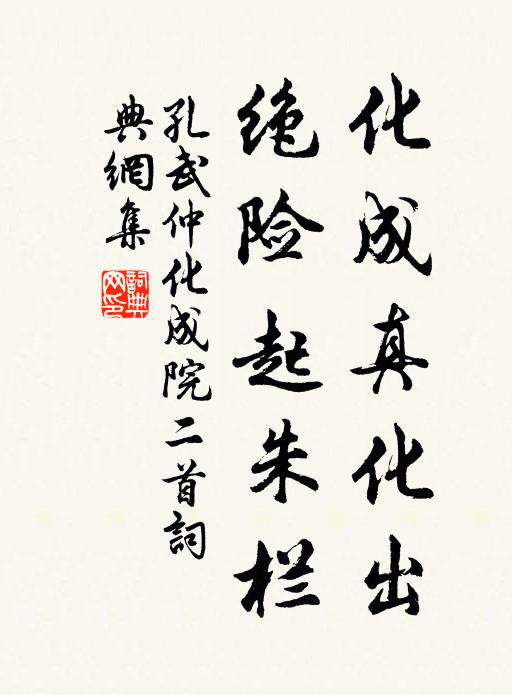 化成真化出
绝险起朱栏
孔武仲化成院二首詞
典網集
詞典网印